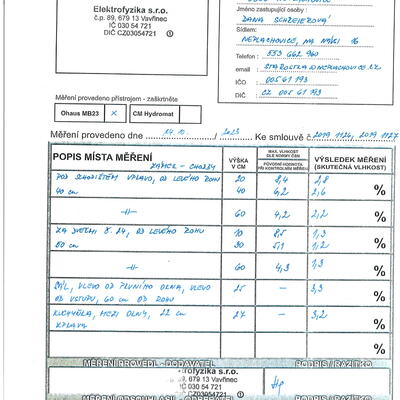 Elektrofyzika s.r.o.
č.p. 89, 679 13 Vavřinec
IČ 030 54 721
DIČ CZ03054721 ①
Jméno zastupující osoby :
DANA
Sídlem:
NEPLACHOVICE, NA NÁVSI 16
Telefon : 553 662 960
email : STAROSTKA@NEPLACHOVICE.CZ
IČO : 005 61 193
DIČ : CZ 005 61 193
Měření provedeno přístrojem - zaškrtněte
Ohaus MB23 X CM Hydromat
Měření provedeno dne 14.10. / 2023 Ke smlouvě č. 2019 1126, 2019 1127
POPIS MÍSTA MĚŘENÍ
VÝŠKA V CM
MAX. VLHKOST DLE NORMY ČSN
PŮVODNÍ HODNOTA PŘI KONTROLNÍM MĚŘENÍ
VÝSLEDEK MĚŘENÍ (SKUTEČNÁ VLHKOST)
POD SCHODIŠTĚM VPRAVO, OD LEVÉHO ROHU 20 8,4 2,8
40 cm 40 6,2 2,6 %
-//- 60 4,2 2,2 %
ZA DVEŘMI Č. 24, OD LEVÉHO ROHU 10 8,5 1,3
50 cm 30 5,1 1,2 %
-//- 60 4,3 1,3 %
SÁL, VLEVO OD PRVNÍHO OKNA, VLEVO 25 — 3,3
OD VSTUPU, 60 cm OD ROHU %
KUCHYŇKA, MEZI OKNY, 22 cm 27 — 3,2
VPRAVO %
%
MĚŘENÍ PROVEDL - DODAVATEL PODPIS / RAZÍTKO
trofyzika s.r.o.
89, 679 13 Vavřinec
IČ 030 54 721
CZ03054721 ①
MĚŘENÍ ODSOUHLASIL - ODBĚRATEL PODPIS / RAZÍTKO